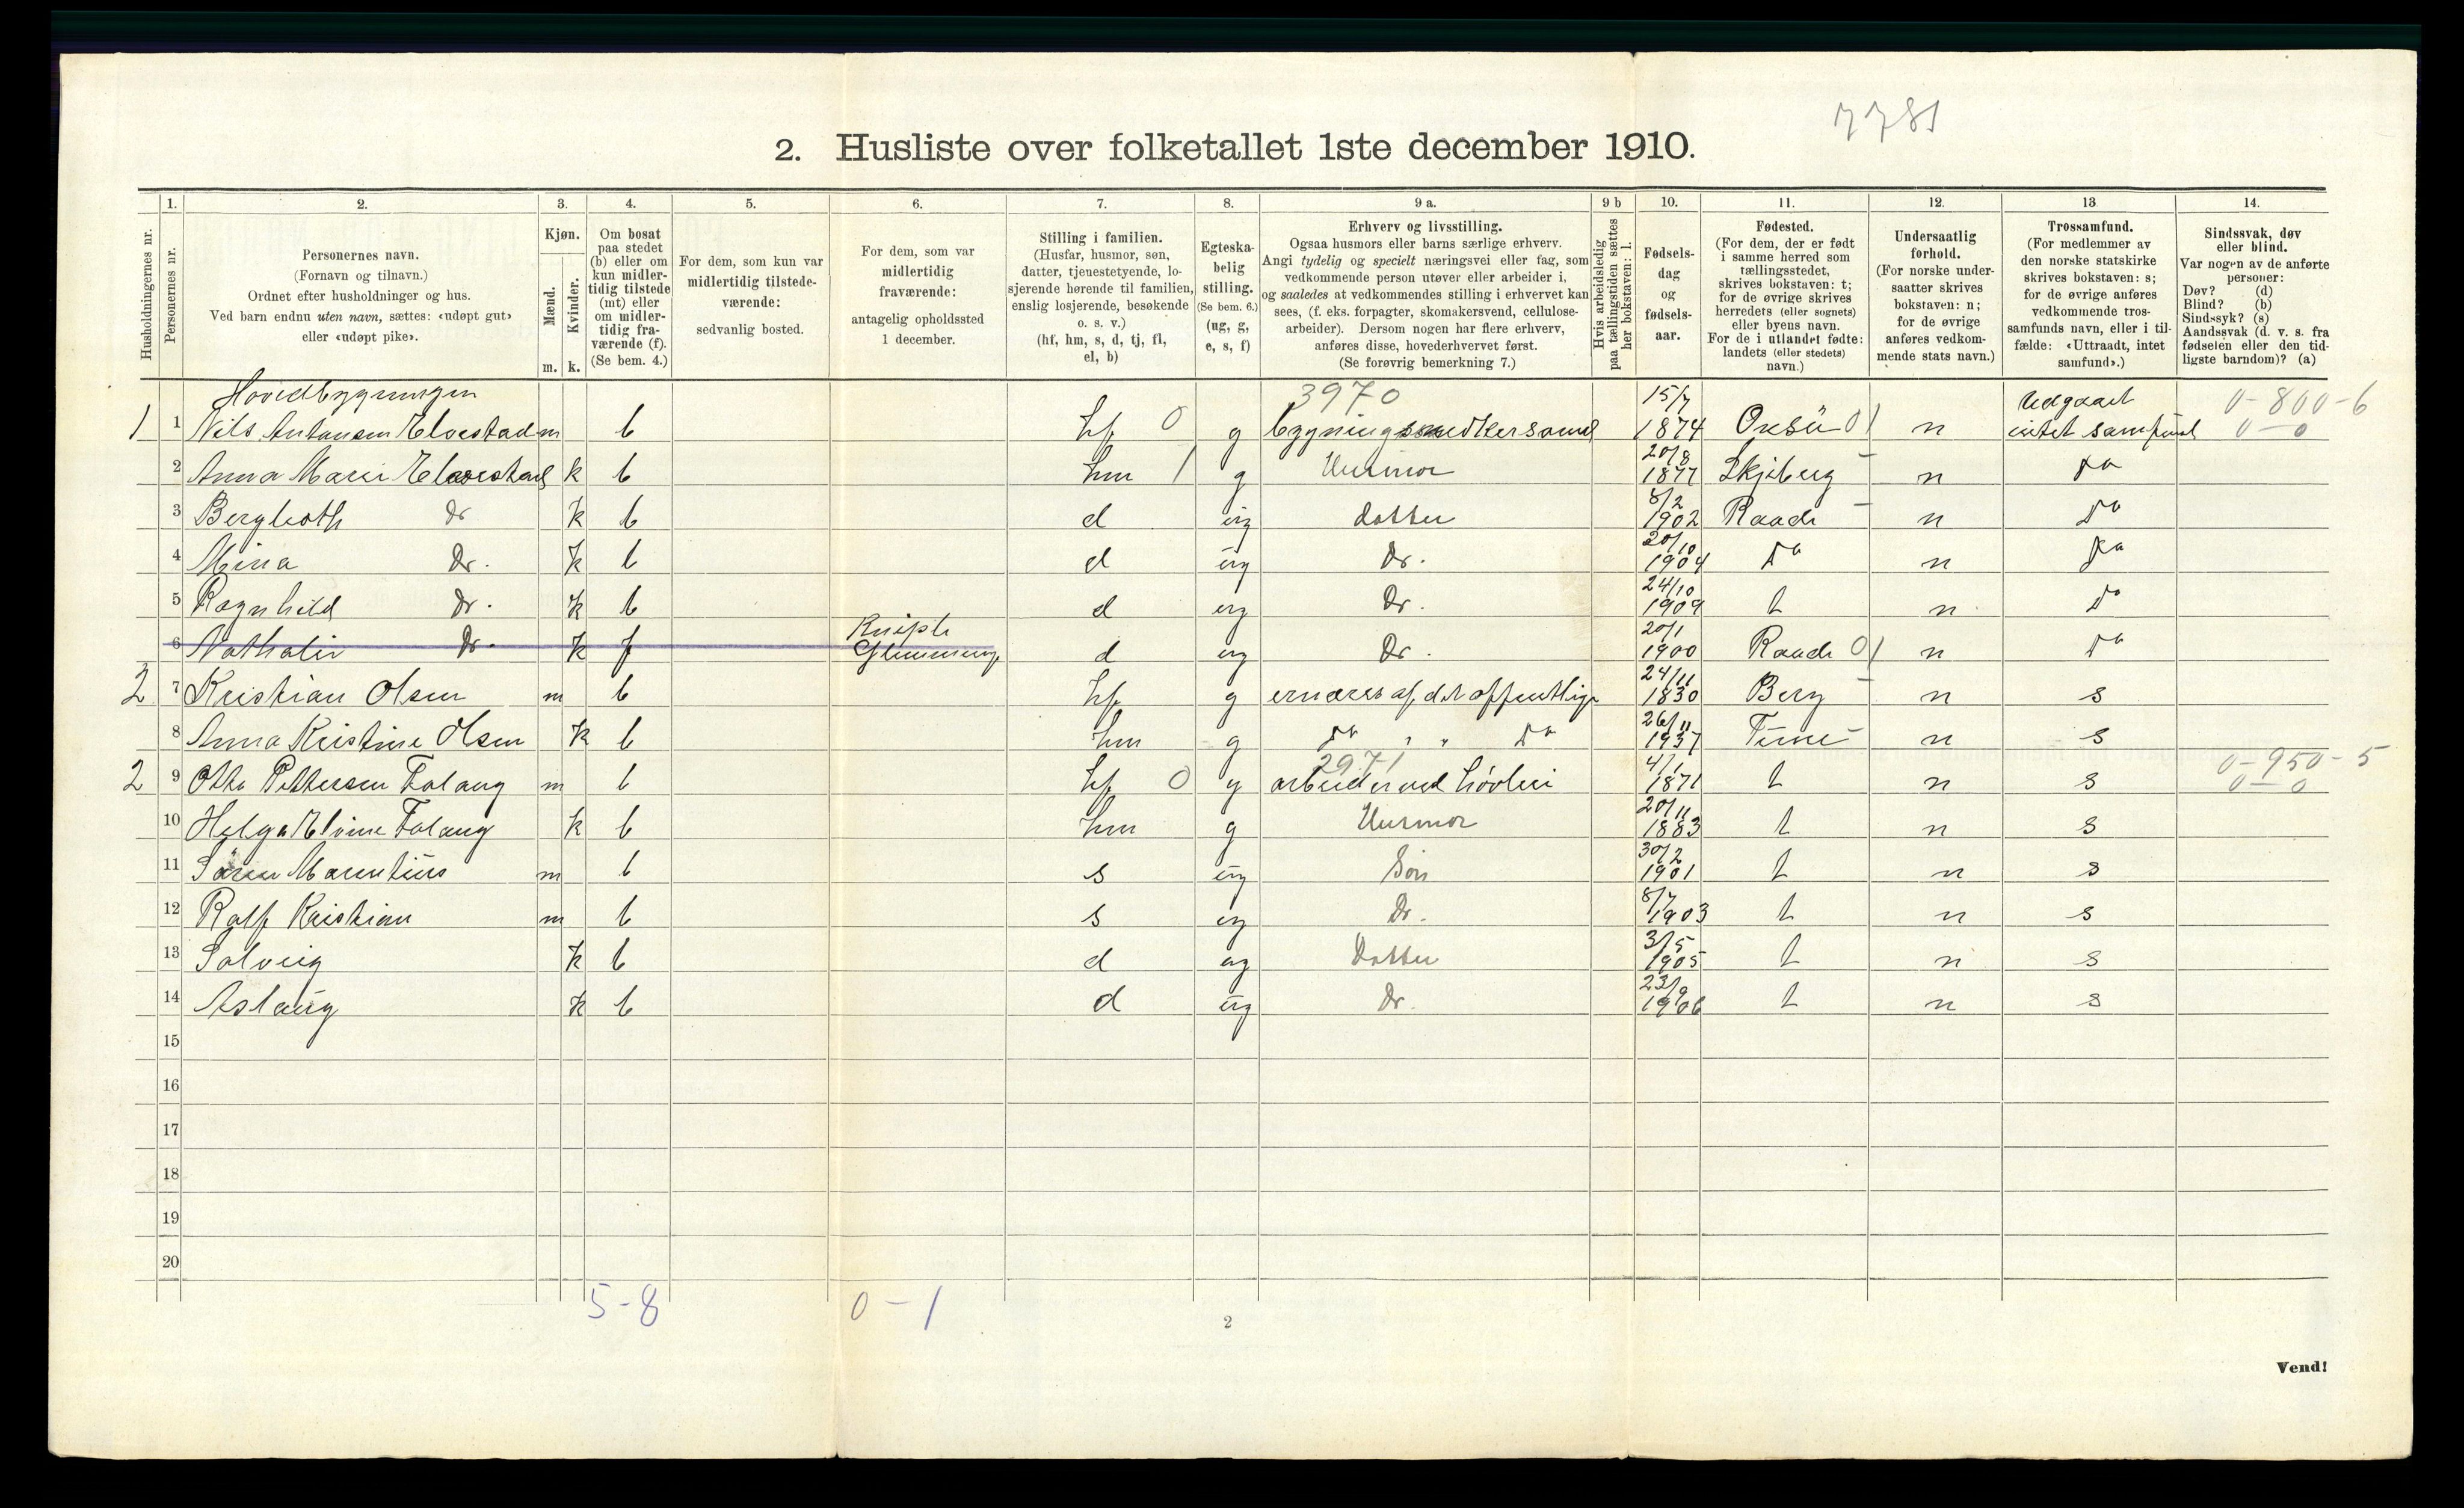 7781
2. Husliste over folketallet 1ste december 1910.
Husholdningernes nr.
1. Personernes nr.
2. Personernes navn.
(Fornavn og tilnavn.)
Ordnet efter husholdninger og hus.
Ved barn endnu uten navn, sættes: «udøpt gut»
eller «udøpt pike».
3. Kjøn.
Mænd. m.
Kvinder. k.
4. Om bosat
paa stedet
(b) eller om
kun midler-
tidig tilstede
(mt) eller
om midler-
tidig fra-
værende (f).
(Se bem. 4.)
5. For dem, som kun var
midlertidig tilstede-
værende:
sedvanlig bosted.
6. For dem, som var
midlertidig
fraværende:
antagelig opholdssted
1 december.
7. Stilling i familien.
(Husfar, husmor, søn,
datter, tjenestetyende, lo-
sjerende hørende til familien,
enslig losjerende, besøkende
o. s. v.)
(hf, hm, s, d, tj, fl,
el, b)
8. Egteska-
belig
stilling.
(Se bem. 6.)
(ug, g,
e, s, f)
9 a. Erhverv og livsstilling.
Ogsaa husmors eller barns særlige erhverv.
Angi tydelig og specielt næringsvei eller fag, som
vedkommende person utøver eller arbeider i,
og saaledes at vedkommendes stilling i erhvervet kan
sees, (f. eks. forpagter, skomakersvend, cellulose-
arbeider). Dersom nogen har flere erhverv,
anføres disse, hovederhvervet først.
(Se forøvrig bemerkning 7.)
9 b Hvis arbeidsledig
paa tællingstiden sættes
her bokstaven: l.
10. Fødsels-
dag
og
fødsels-
aar.
11. Fødested.
(For dem, der er født
i samme herred som
tællingsstedet,
skrives bokstaven: t;
for de øvrige skrives
herredets (eller sognets)
eller byens navn.
For de i utlandet fødte:
landets (eller stedets)
navn.)
12. Undersaatlig
forhold.
(For norske under-
saatter skrives
bokstaven: n;
for de øvrige
anføres vedkom-
mende stats navn.)
13 Trossamfund.
(For medlemmer av
den norske statskirke
skrives bokstaven: s;
for de øvrige anføres
vedkommende tros-
samfunds navn, eller i til-
fælde: «Uttraadt, intet
samfund».)
14. Sindssvak, døv
eller blind.
Var nogen av de anførte
personer:
Døv? (d)
Blind? (b)
Sindssyk? (s)
Aandssvak (d. v. s. fra
fødselen eller den tid-
ligste barndom)? (a)
Hovedbygningen 3970 15/7 Udgaaet 0-800-6
1 1 Nils Antonsen Elvestad m b hf 0 g bygningssnedkersvend 1874 Onsö 01 n intet samfund 0-0
2 Anna Marie Elvestad k b hm 1 g Husmor 20/8 1877 Skjeberg - n Do
3 Berglioth Do k b d ug datter 8/2 1902 Raade - n Do
4 Mina Do. k b d ug Do. 20/10 1904 Do n Do
5 Ragnhild Do. k b d ug Do. 24/10 1909 t n Do
6 Nathalie Do. k f Glemminge d ug Do. 20/1 1900 Raade 01 n Do
2 7 Kristian Olsen m b hf g ernæres af det offentlige 24/11 1830 Berg - n s
8 Anna Kristine Olsen k b hm g Do " " Do 26/11 1937 Tune - n s
2971 0-950-5
2 9 Otto Pettersen Falang m b hf 0 g arbeider ved høvleri 4/1 1871 t n s 0-0
10 Helga Elvine Falang k b hm g Husmor 20/11 1883 t n s
11 Sören Marentius m b s ug Sön 30/2 1901 t n s
12 Ralf Kristian m b s ug Do. 8/7 1903 t n s
13 Solveig k b d ug Datter 3/5 1905 t n s
14 Aslaug k b d ug Do. 23/9 1906 t n s
15
16
17
18
19
20
5-8 0-1
2
Vend!